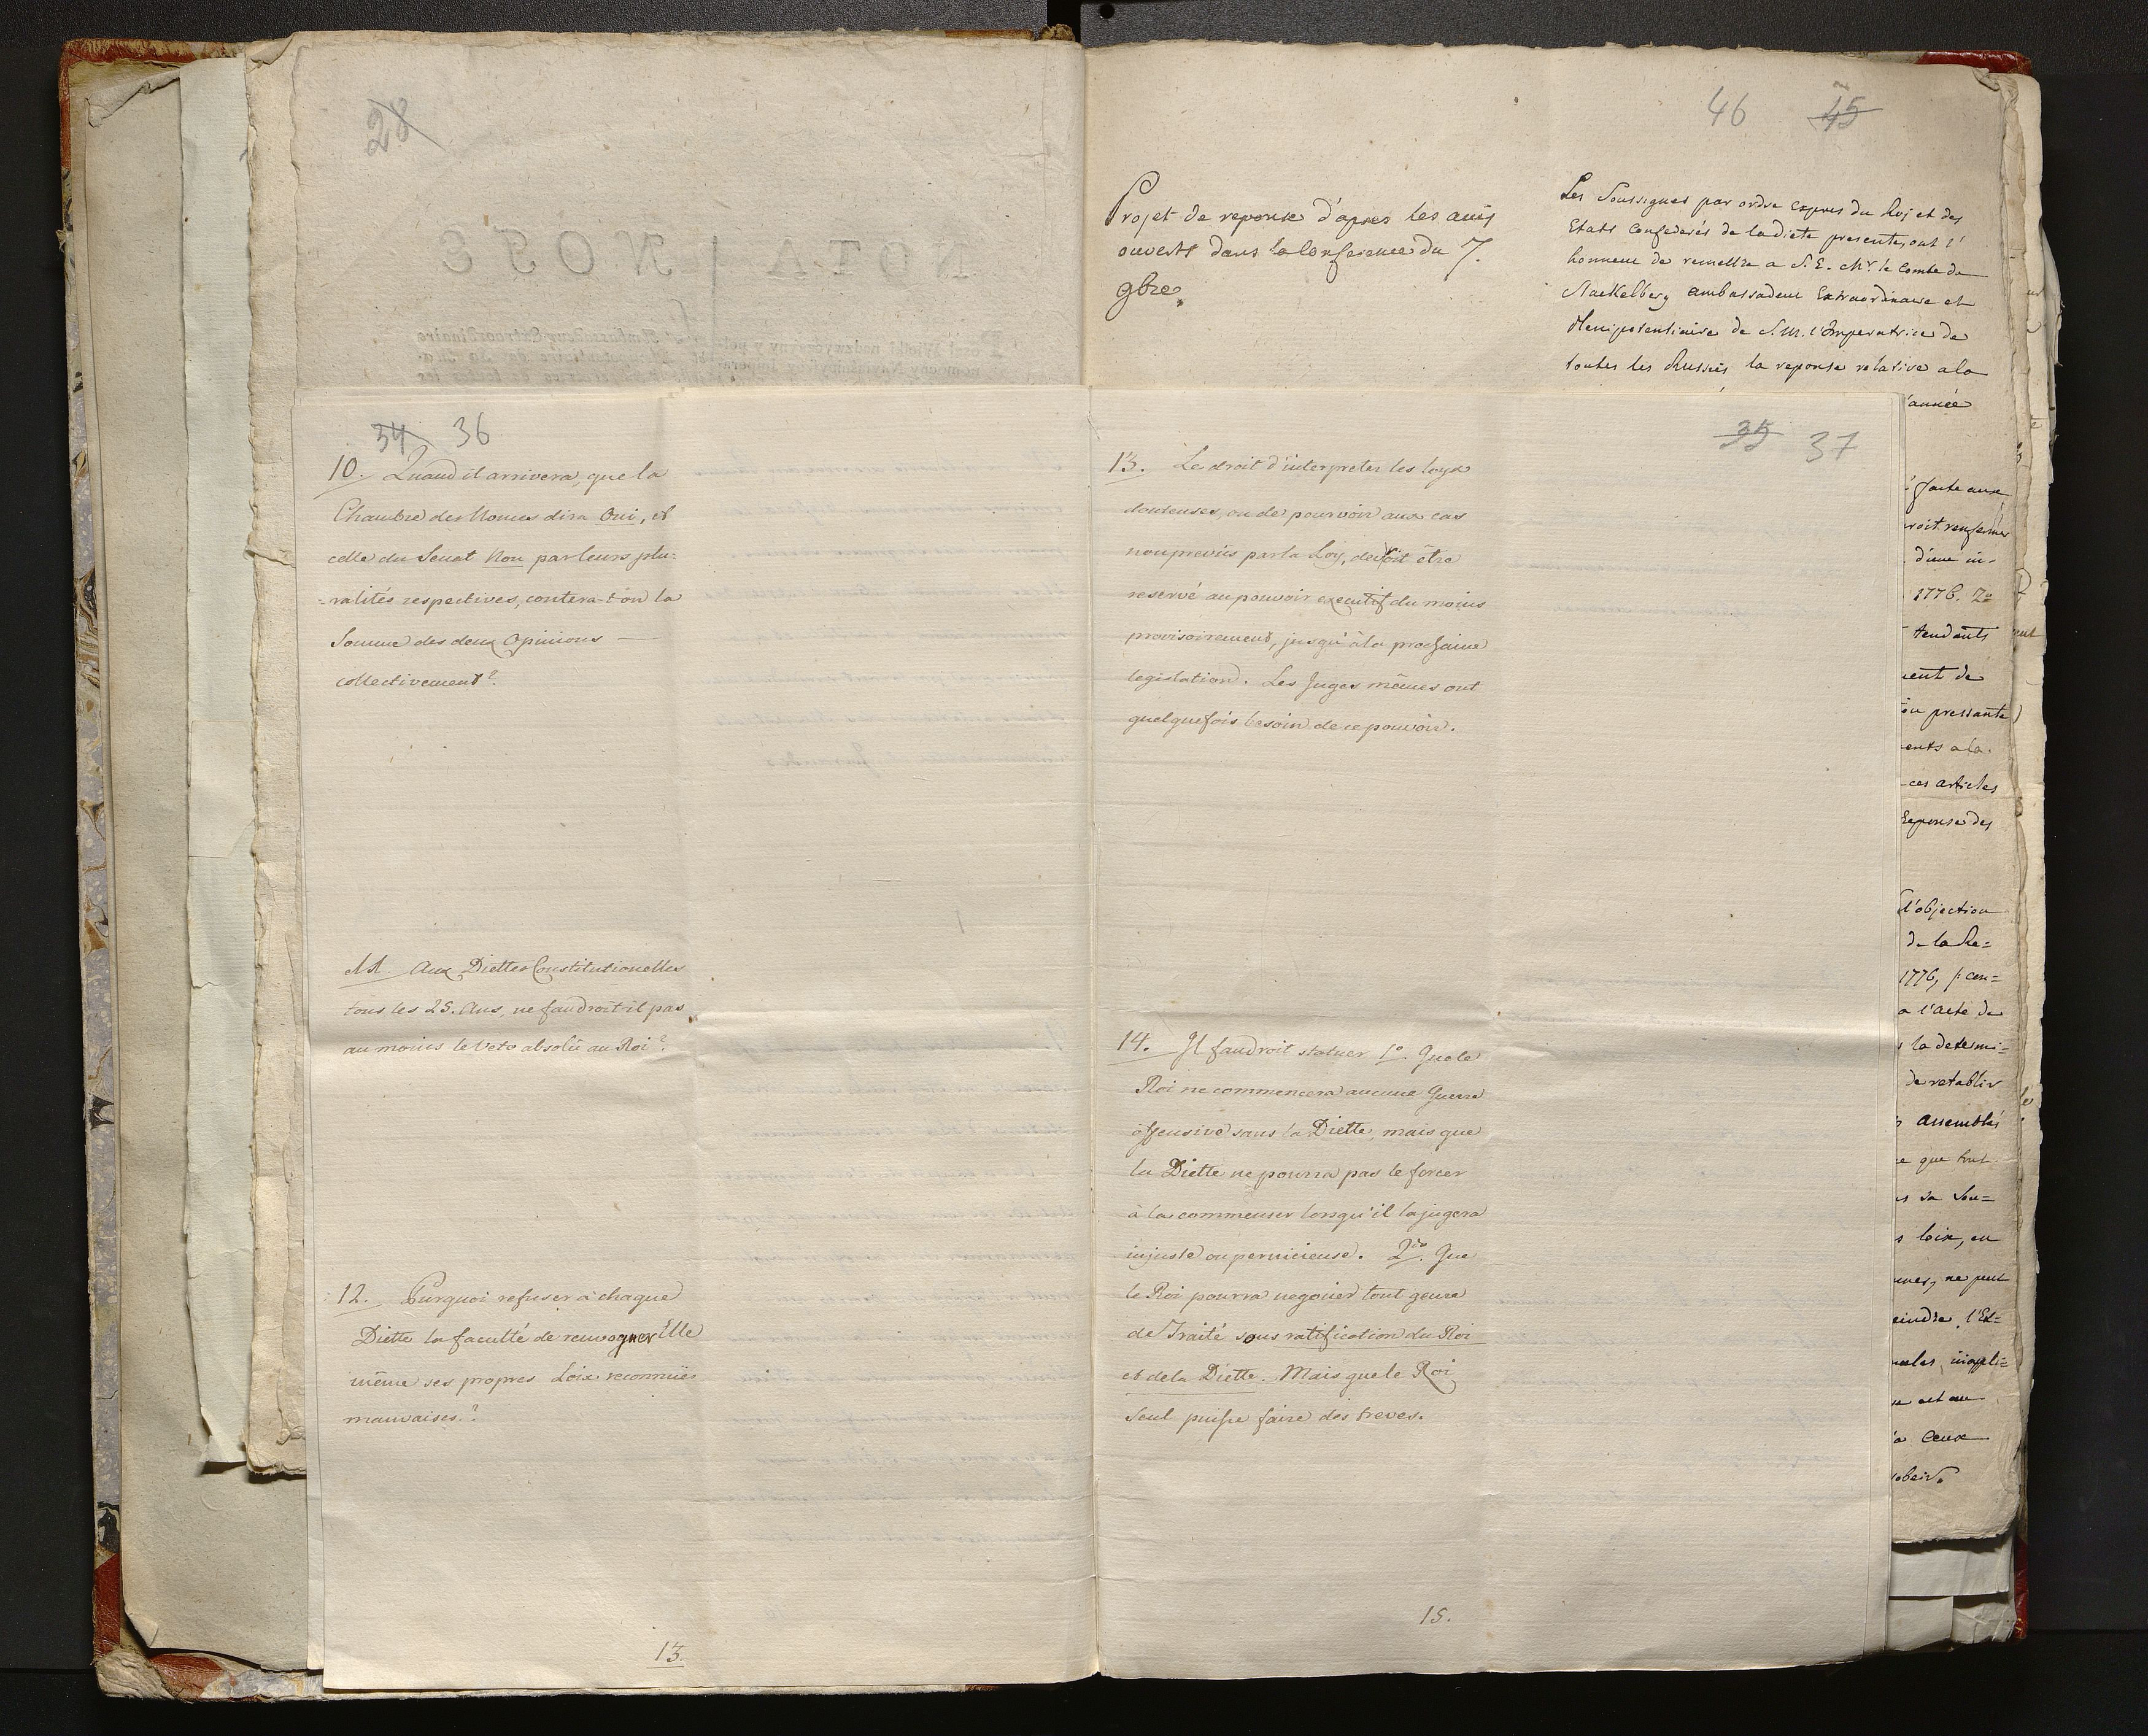 28
46 45
Projet de reponse d'apres les avis
ouverts dans la Conference du 7.
9bre.
Les Soussignes par ordre expres du Roj et des
Etats Confederés de la diete presente, ont l'
honneur de remettre a S. E. Mr. le Comte de
Stackelberg ambassadeur Extraordinaire et
Plenipotentiaire de S. M. l'Imperatrice de
toutes les Russies la reponse relative a la
34 36
10. Quand il arrivera, que la
Chambre des Nonces dira Oui, et
celle du Senat Non par leurs plu=
=ralités respectives, contera-t'on la
Somme des deux Opinions —
collectivement?
11. Aux Diettes Constitutionelles
tous les 25. Ans, ne faudroit-il pas
au moins le Veto absolû au Roi?
12. Purquoi refuser à chaque
Diette la faculté de Elle
même ses propres Loix reconnües
mauvaises?
13.
35 37
13. Le droit d'interpreter les loys
douteuses, ou de pourvoir aux cas
non prevûs par la Loy, devroit être
reservé au pouvoir executif du moins
provisoirement, jusqu'à la prochaine
legislation. Les Juges mêmes ont
quelquefois besoin de ce pouvoir.
14. Il faudroit statuer 1o. Que le
Roi ne commencera aucune Guerre
offensive sans la Diette, mais que
la Diette ne pourra pas le forcer
à la commenser lorsqu'il la jugera
injuste ou pernicieuse. 2do. Que
le Roi pourra negocier tout genre
de Traité sous ratification du Roi
et de la Diette. Mais que le Roi
seul puisse faire des treves.
15.
l'année
d'une in-
1776. 2o
tendants
pressante
ents a la
ces articles
Reponse des
l'objection
de la Re=
1776,
a l'acte de
la determi=
de retablir
assemblés
que tout
sa Sou=
loix, en
ne peut
l'Ex=
a Ceux